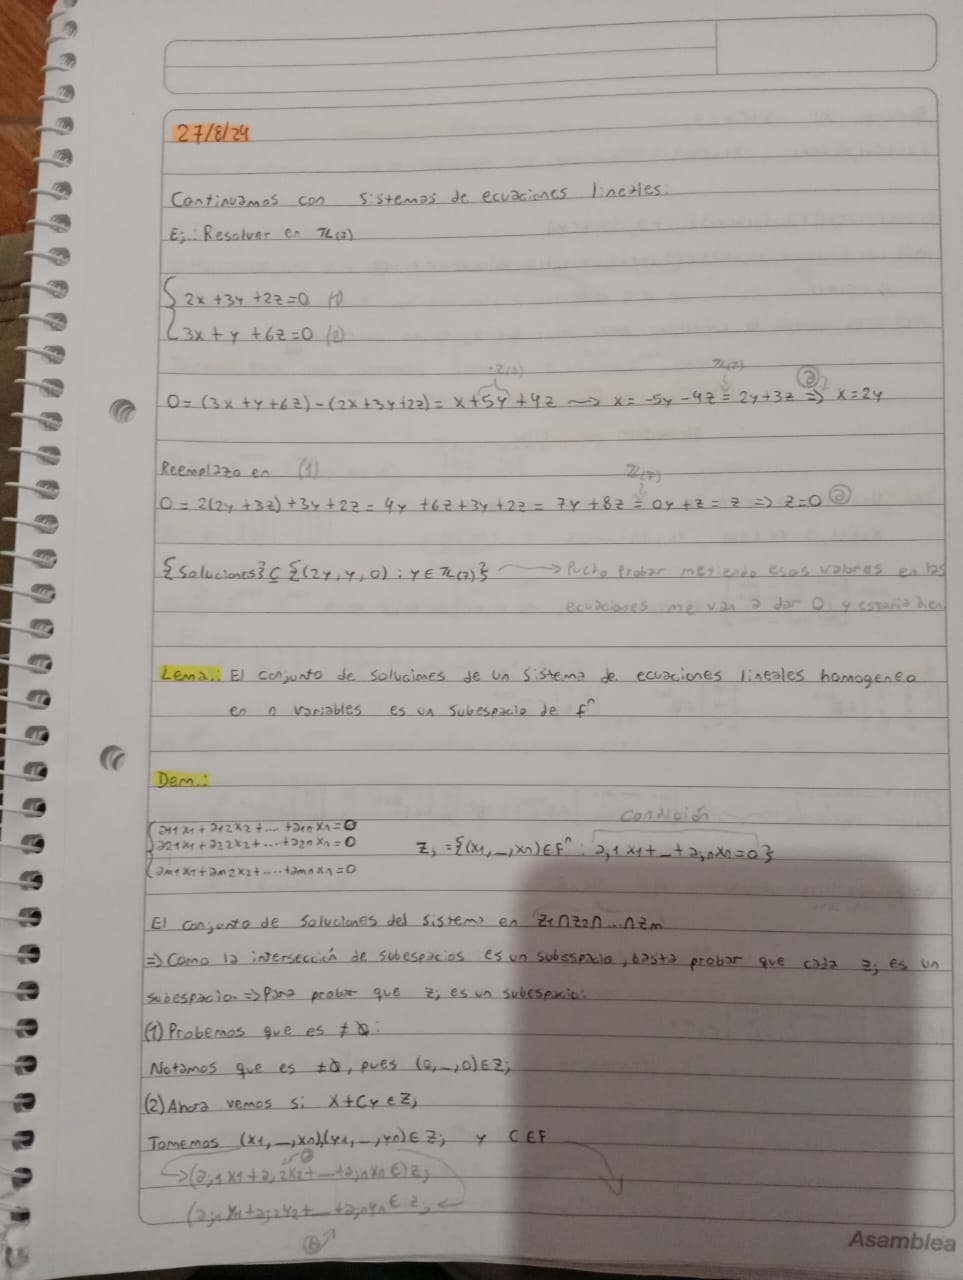 27/8/24
Continuamos con sistemas de ecuaciones lineales.
Ej.: Resolver en ℤ(7)
2x + 3y + 2z = 0 (1)
3x + y + 6z = 0 (2)
-2(7) ℤ(7) (a)
0 = (3x + y + 6z) - (2x + 3y + 2z) = x + 5y + 4z ⇝ x = -5y - 4z = 2y + 3z ⇒ x = 2y
Reemplazo en (1) ℤ(7)
0 = 2(2y + 3z) + 3y + 2z = 4y + 6z + 3y + 2z = 7y + 8z = 0y + z = z ⇒ z = 0 (a)
{Soluciones} ⊆ {(2y, y, 0) : y ∈ ℤ(7)} ⟶ Puedo probar metiendo esos valores en las
ecuaciones me van a dar 0 y estaria bien
Lema.: El conjunto de soluciones de un sistema de ecuaciones lineales homogeneo
en n variables es un subespacio de Fⁿ
Dem.:
Condición
a11 x1 + a12 x2 + ... + a1n xn = 0
a21 x1 + a22 x2 + ... + a2n xn = 0 zj = {(x1, _, xn) ∈ Fⁿ : aj1 x1 + _ + ajn xn = 0}
am1 x1 + am2 x2 + .... + amn xn = 0
El conjunto de soluciones del sistema en z1 ∩ z2 ∩ ... ∩ zm
⇒ Como la intersección de subespacios es un subespacio, basta probar que cada zj es un
subespacio. ⇒ Para probar que zj es un subespacio:
(1) Probemos que es ≠ ∅:
Notamos que es ≠ ∅, pues (0, _, 0) ∈ zj
(2) Ahora vemos si x + cy ∈ zj
Tomemos (x1, _, xn), (y1, _, yn) ∈ zj y C ∈ F
(aj1 x1 + aj2 x2 + _ + ajn xn ∈) zj
(aj1 y1 + aj2 y2 + _ + ajn yn ∈ zj
Asamblea